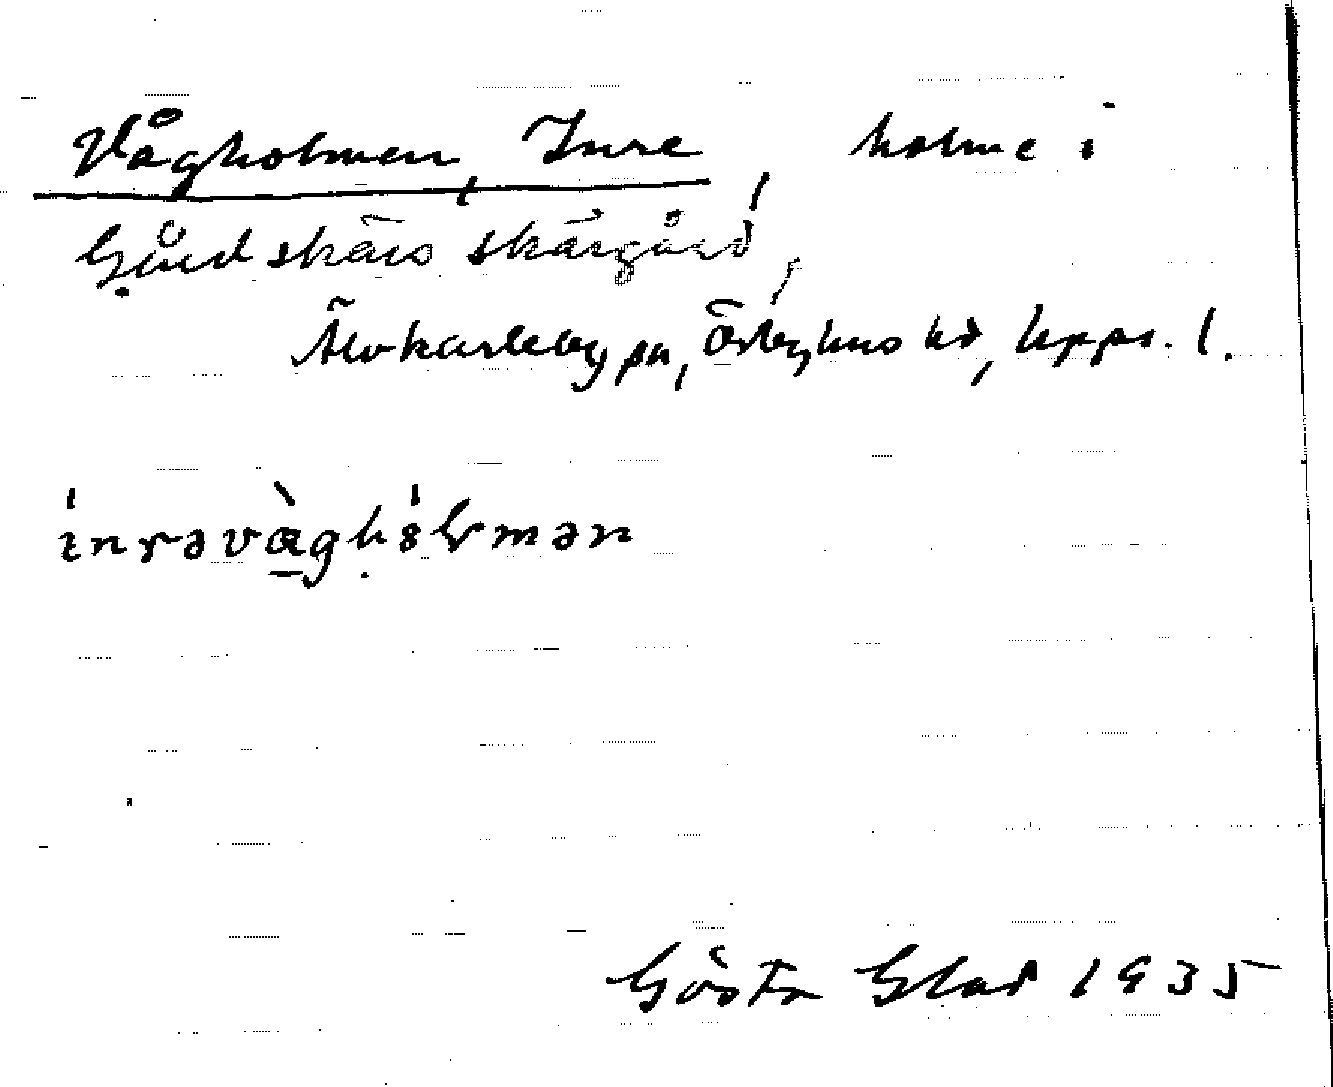 Vågholmen, Inre, holme i
Gårdskärs skärgård,
Älvkarleby sn, Örbyhus hd, Upps. l.
ínrəvàghólmən
Gösta Glad 1935